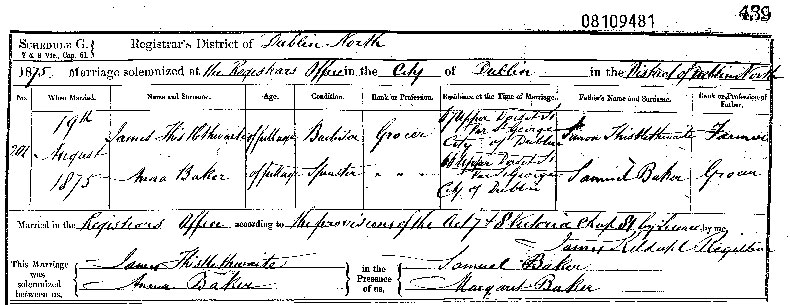 439
08109481
SCHEDULE G. Registrar's District of Dublin North
7 & 8 Vic., Cap. 81.
1875. Marriage solemnized at the Registrars Office in the City of Dublin in the District of Dublin North
No. When Married. Name and Surname. Age. Condition. Rank or Profession. Residence at the Time of Marriage. Father's Name and Surname. Rank or Profession of Father.
201 19th August 1875
James Thistlethwaite of full age Bachelor Grocer Upper Dorset St Par St George City of Dublin Thistlethwaite Farmer
Anna Baker of full age Spinster " " Upper Dorset St Par St George City of Dublin Samuel Baker Grocer
Married in the Registrars Office according to the provisions of the Act 7 & 8 Victoria Chap 81 by license by me,
James Registrar
This Marriage was solemnized between us, James Thistlethwaite Anna Baker in the Presence of us, Samuel Baker Margaret Baker